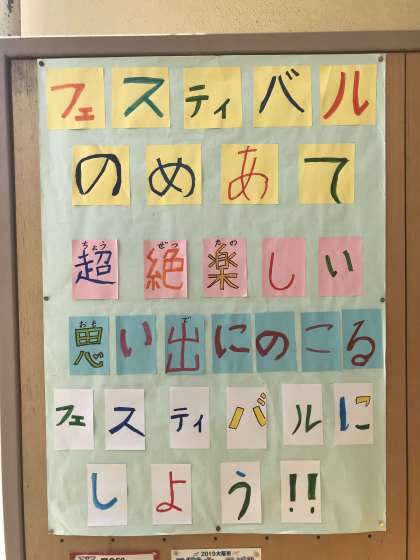 フェスティバル
のめあて
超絶楽しい
思い出にのこる
フェスティバルに
しよう!!
2019大阪市